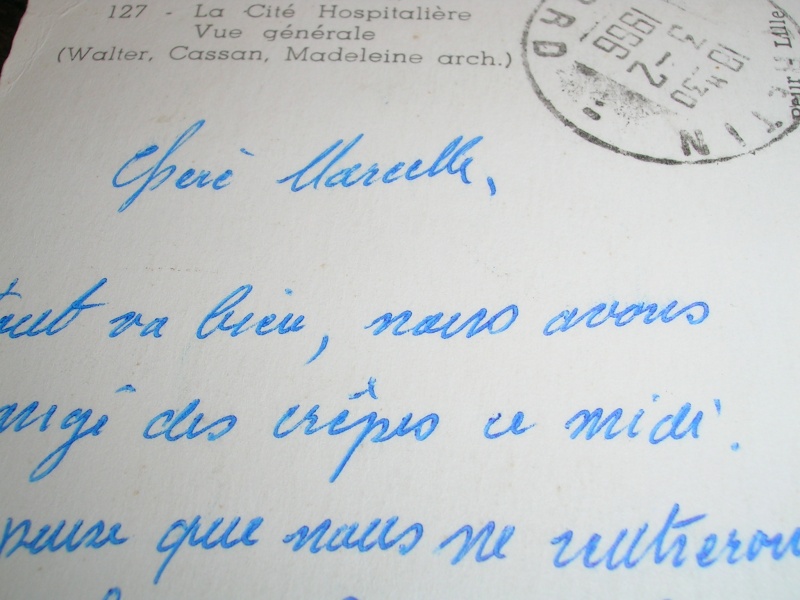 127 - La Cité Hospitalière
Vue générale
(Walter, Cassan, Madeleine arch.)
10 H 30
3 - 2
1956
RD
TIN
Lille
Cherè Marcelle,
tout va bien, nous avons
angé des crêpes ce midi.
pense que nous ne rentreron